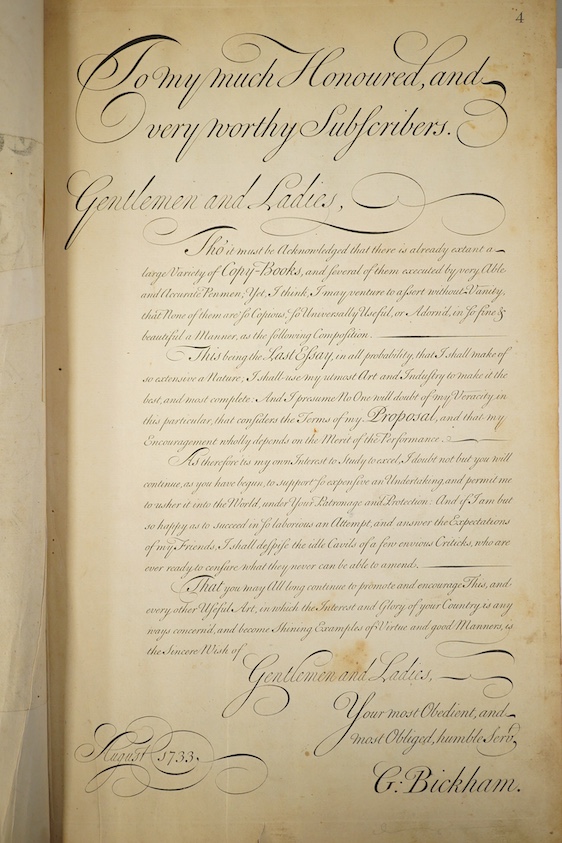 4
To my much Honoured, and
very worthy Subſcribers.
Gentlemen and Ladies,
Tho' it must be Acknowledged that there is already extant a
large Variety of Copy-Books, and ſeveral of them executed by very Able
and Accurate Penmen; Yet, I think, I may venture to aſsert without Vanity,
that None of them are ſo Copious, ſo Universally Uſeful, or Adorn'd, in ſo fine &
beautiful a Manner, as the following Compoſition.
This being the Last Eſsay, in all probability, that I shall make of
so extensive a Nature; I shall use my utmost Art and Induſtry to make it the
best, and most complete: And I presume No One will doubt of my Veracity in
this particular, that conſiders the Terms of my Proposal, and that my
Encouragement wholly depends on the Merit of the Performance.
As therefore 'tis my own Interest to Study to excel, I doubt not but you will
continue, as you have begun, to support ſo expenſive an Undertaking, and permit me
to usher it into the World, under Your Patronage and Protection: And if I am but
so happy as to succeed in ſo laborious an Attempt, and answer the Expectations
of my Friends, I shall deſpiſe the idle Cavils of a few envious Criticks, who are
ever ready to cenſure what they never can be able to amend.
That you may All long continue to promote and encourage This, and
every other Uſeful Art, in which the Interest and Glory of your Country is any
ways concern'd, and become Shining Examples of Virtue and good Manners, is
the Sincere Wish of
Gentlemen and Ladies,
Your most Obedient, and
most Obliged, humble Serv.
August 1733.
G: Bickham.